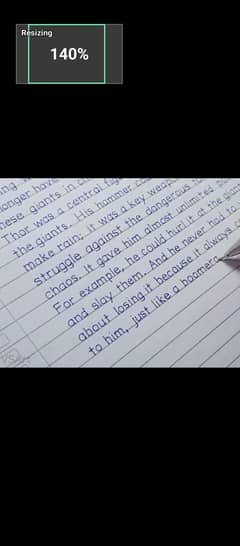 Resizing
140%
longer have
these giants in
Thor was a central
the giants. His hammer
make rain, it was a key weapon
struggle against the dangerous
chaos. It gave him almost unlimited
For example, he could hurl it at the giants
and slay them. And he never had to
about losing it because it always
to him, just like a boomera